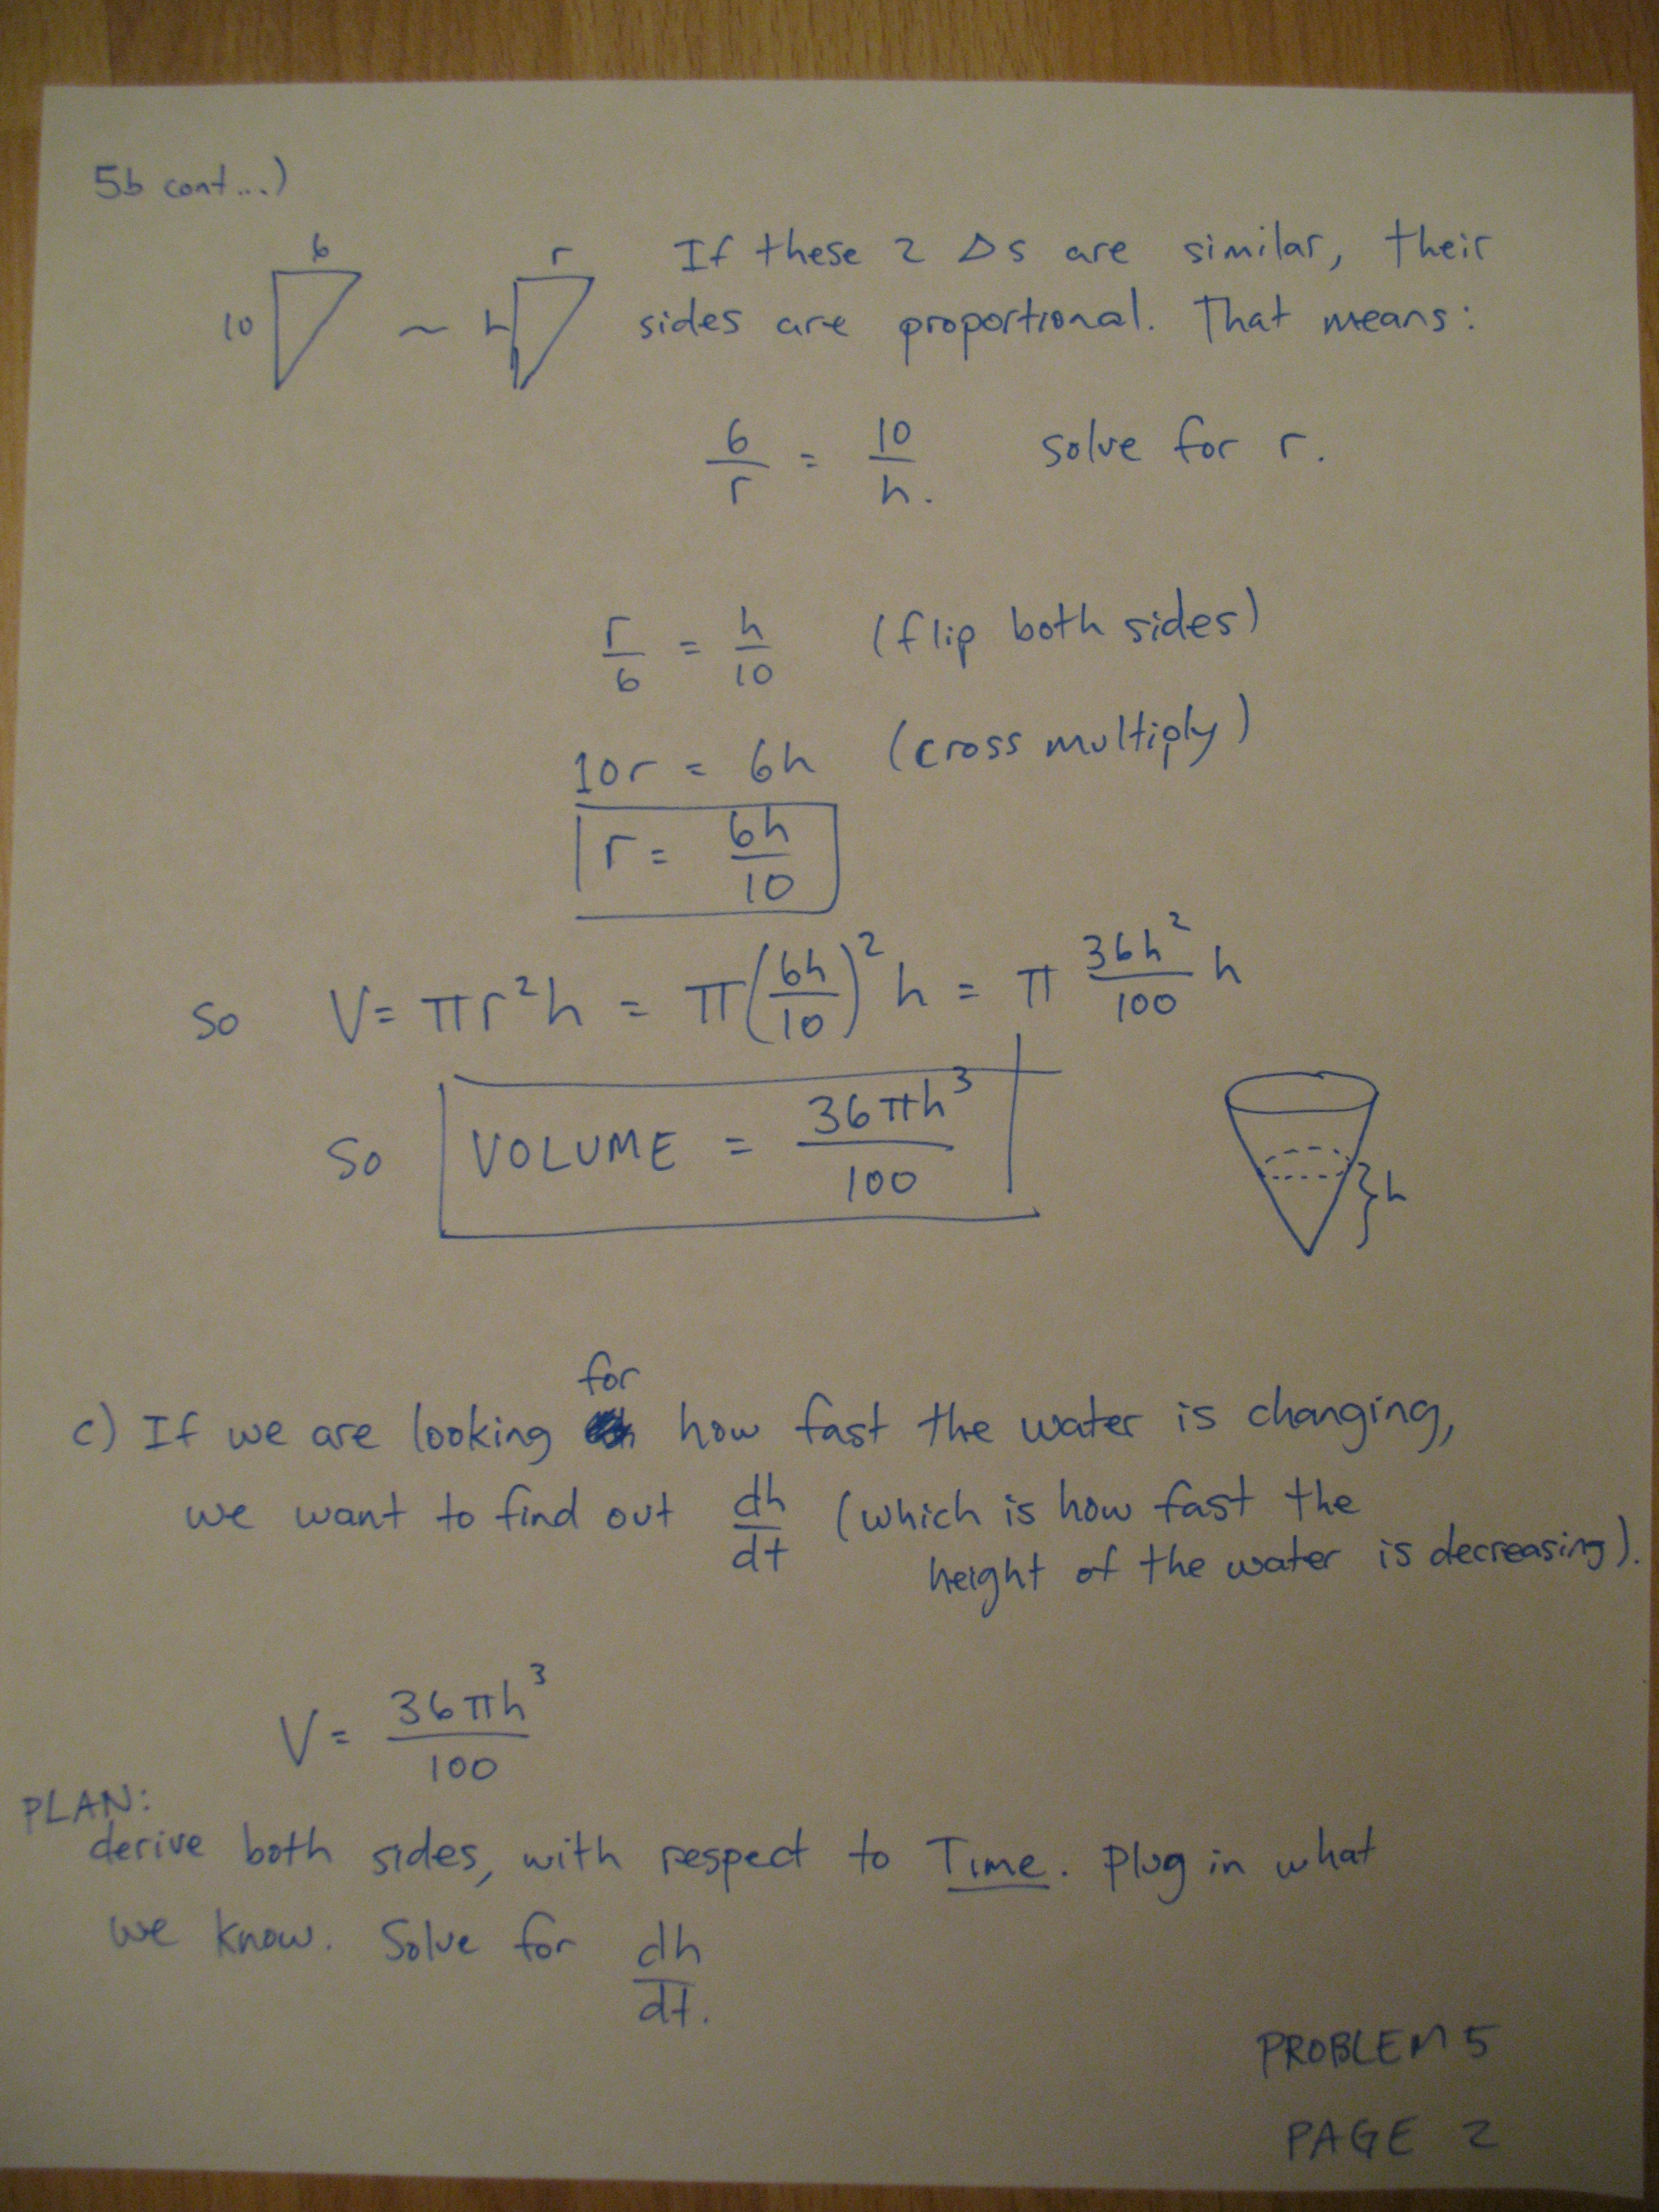 5b cont...)
6 r If these 2 Δs are similar, their
10 ~ h sides are proportional. That means:
6/r = 10/h. solve for r.
r/6 = h/10 (flip both sides)
10r = 6h (cross multiply)
r = 6h/10
so V = πr²h = π(6h/10)²h = π 36h²/100 h
so VOLUME = 36πh³/100
h
for
c) If we are looking how fast the water is changing,
we want to find out dh/dt (which is how fast the
height of the water is decreasing).
V = 36πh³/100
PLAN:
derive both sides, with respect to Time. Plug in what
we know. Solve for dh/dt.
PROBLEM 5
PAGE 2